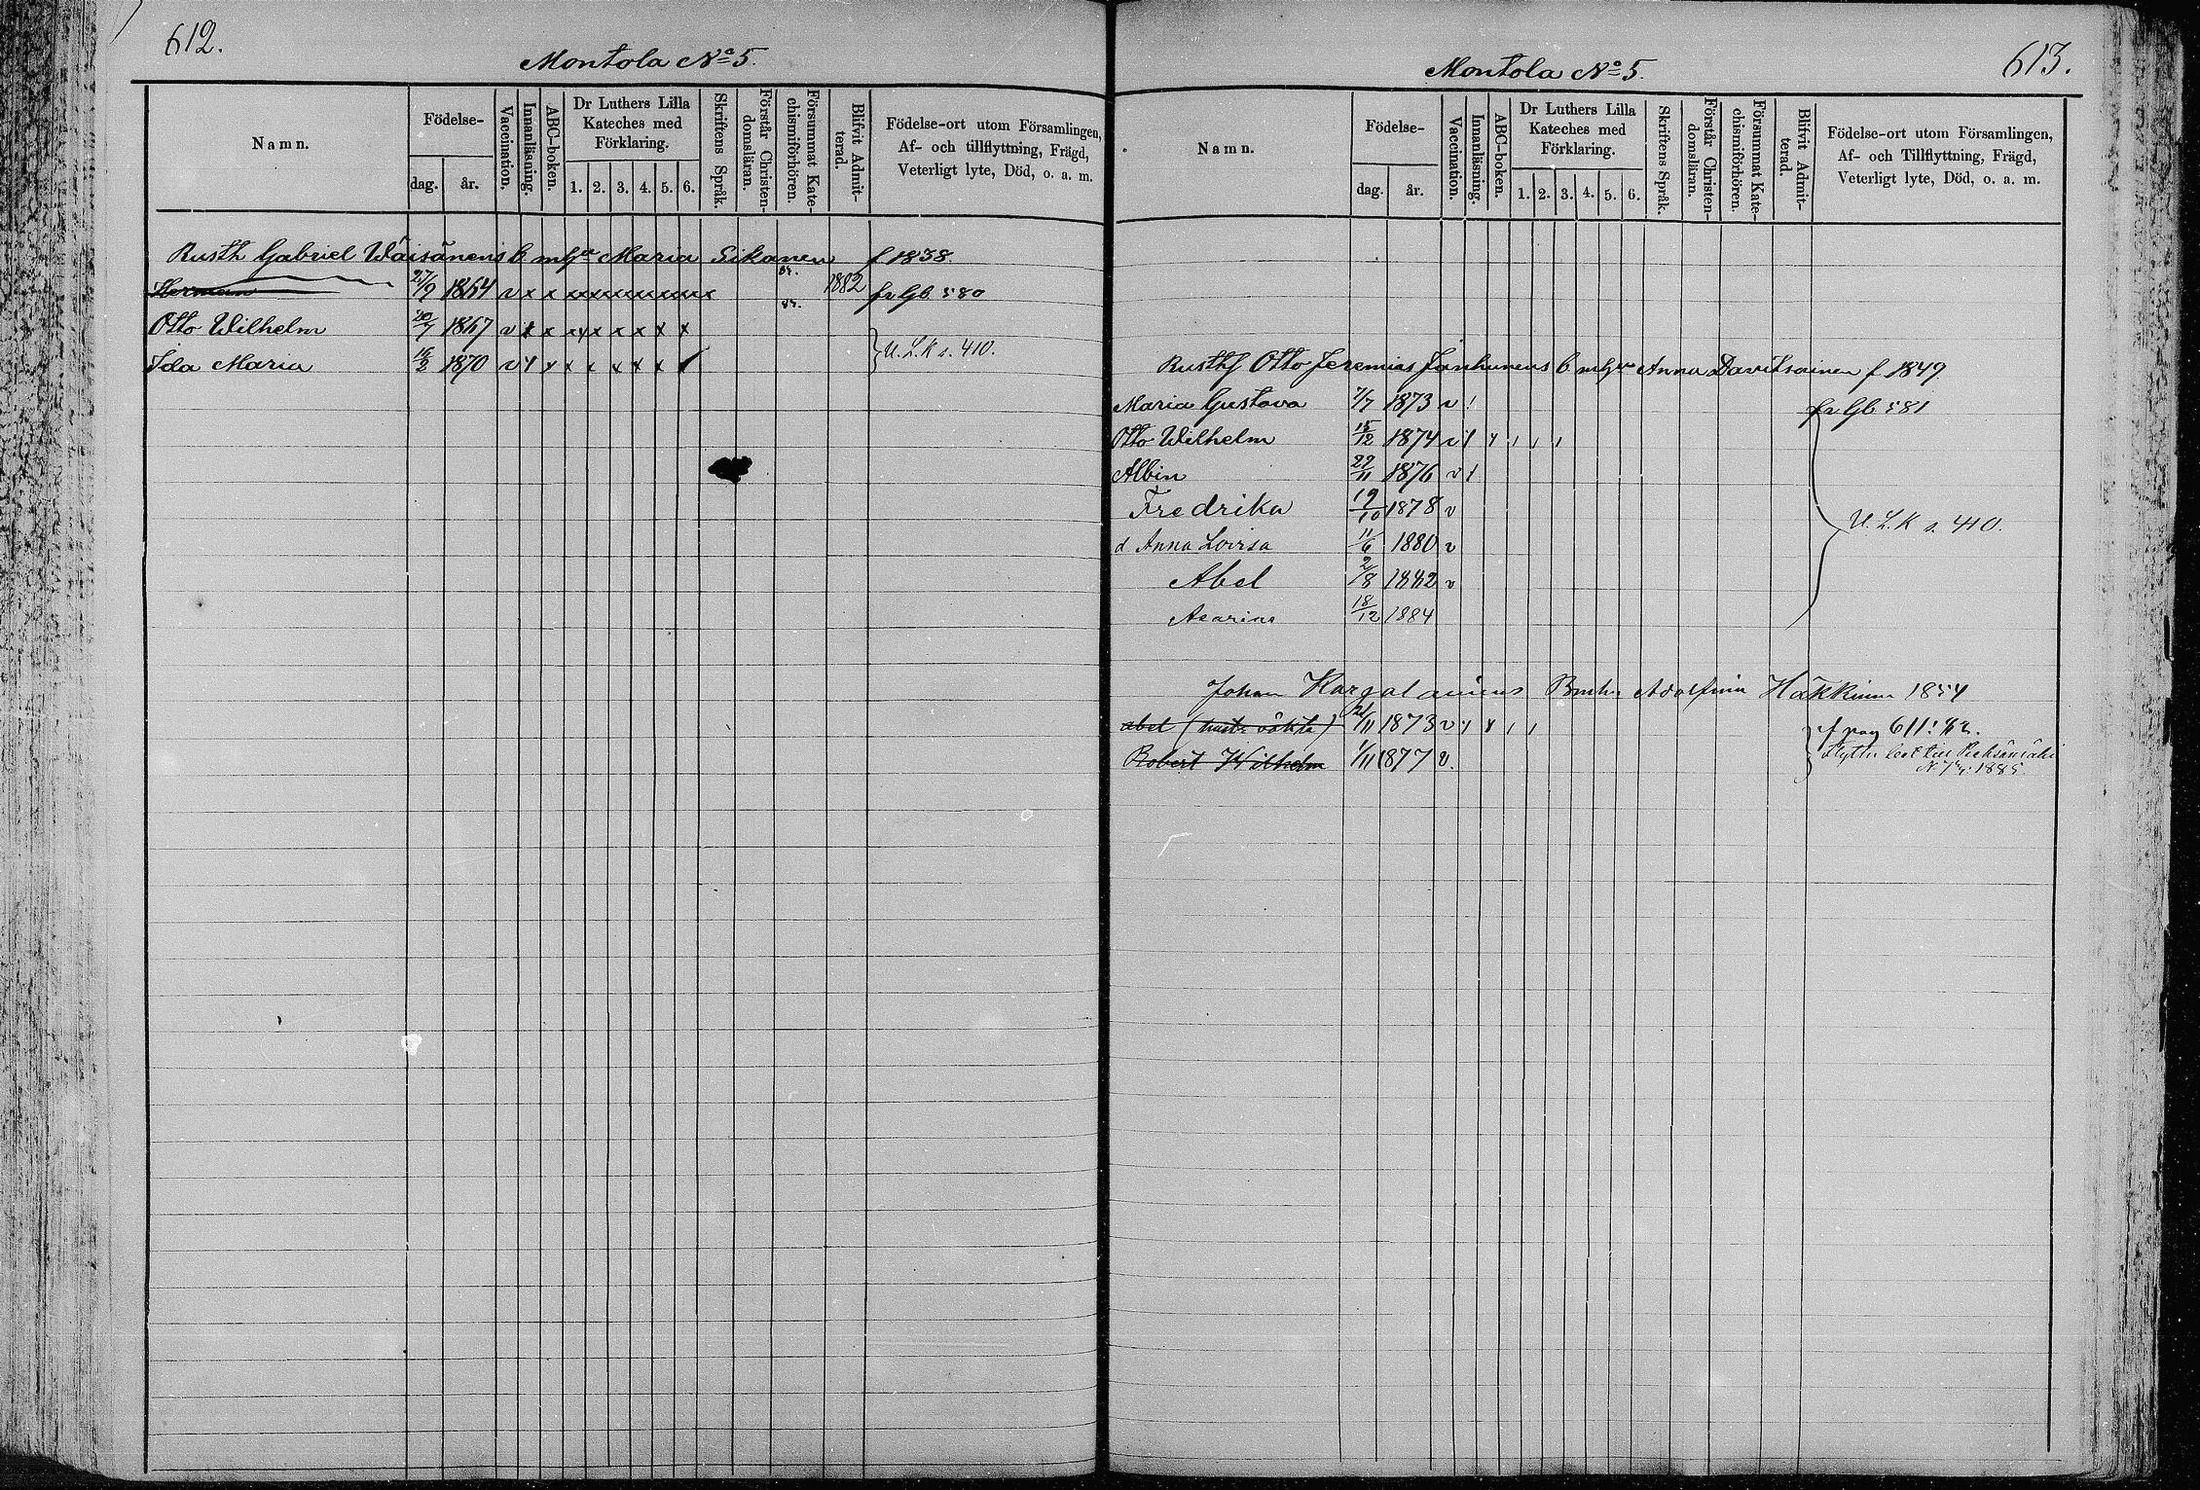 612.
Montola No 5.
Namn.
Födelse-
dag.
år.
Vaccination.
Innanläsning.
ABC-boken.
Dr Luthers Lilla
Kateches med
Förklaring.
1. 2. 3. 4. 5. 6.
Skriftens Språk.
Förstår Christen-
domsläran.
Försummat Kate-
chismiförhören.
Blifvit Admit-
terad.
Födelse-ort utom Församlingen,
Af- och tillflyttning, Frägd,
Veterligt lyte, Död, o. a. m.
Rusth Gabriel Wäisänens b m hu Maria Sikanen f 1838
Herman 27/9 1864 v x x x x x x x x x x 1882 fr Gb 580
Otto Wilhelm 20/7 1867 v x x x x x x x x
Ida Maria 15/2 1870 v x x x x x x x
U. L. K s. 410.
613.
Montola No 5.
Namn.
Födelse-
dag.
år.
Vaccination.
Innanläsning.
ABC-boken.
Dr Luthers Lilla
Kateches med
Förklaring.
1. 2. 3. 4. 5. 6.
Skriftens Språk.
Förstår Christen-
domsläran.
Försummat Kate-
chismiförhören.
Blifvit Admit-
terad.
Födelse-ort utom Församlingen,
Af- och Tillflyttning, Frägd,
Veterligt lyte, Död, o. a. m.
Rusthf Otto Jeremias Janhunens b m hu Anna Davitsainen f 1849.
Maria Gustava 7/7 1873 v fr Gb 581
Otto Wilhelm 15/12 1874 v
Albin 22/11 1876 v
Fredrika 19/10 1878 v
U. L. K s. 410.
d Anna Lovisa 11/6 1880 v
Abel 2/8 1882 v
Asarias 18/12 1884
Johan Kargalainens Adolfina Häkkinen 1854
abel 21/11 1873 v f pag 611
Robert Wilhelm 1/11 1877 v.
till Pieksämäki
1885